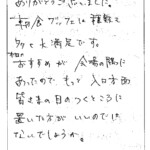 ありがとうございました。
朝食ブッフェは種類も
多く大満足です。
本日の
おすすめが会場の隅に
あったので、もっと入口方面
皆さまの目のつくところに
置いた方がいいのでは
ないでしょうか。